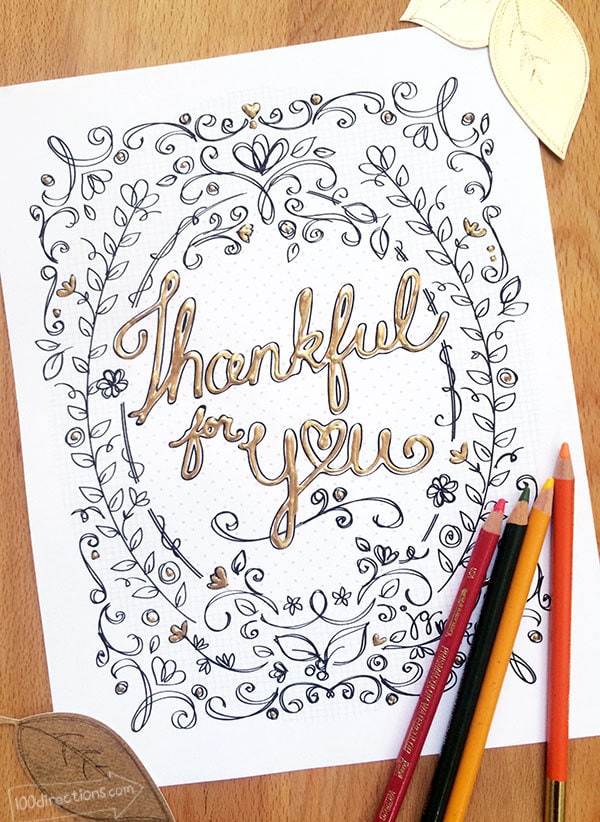 Thankful
for you
100directions.com